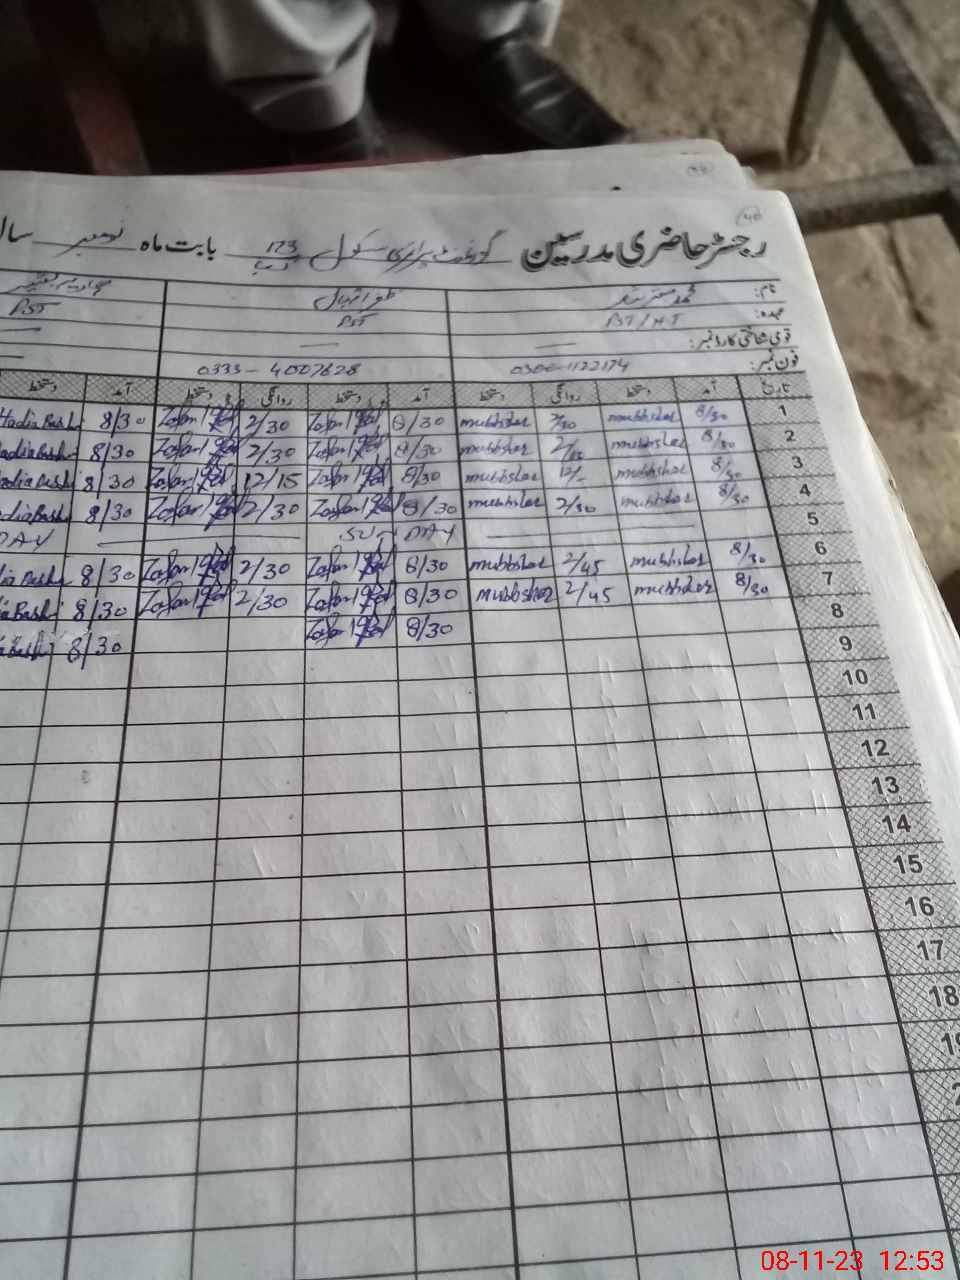 رجسٹر حاضری مدرسین گورنمنٹ پرائمری سکول 123 بابت ماہ نومبر سال
نام: محمد مبشر ظفر اقبال
عہدہ: PST/HT PST PST
قومی شناختی کارڈ نمبر:
فون نمبر: 0300-1122174 0333-4007628
تاریخ آمد دستخط روانگی دستخط آمد دستخط روانگی دستخط آمد دستخط
1 8/30 mubbsher 2/30 mubbsher 8/30 Zafar Iqbal 2/30 Zafar Iqbal 8/30 Hadia Bash
2 8/30 mubbsher mubbsher 8/30 Zafar Iqbal 2/30 Zafar Iqbal 8/30 Hadia Bash
3 8/30 mubbsher 12/- mubbsher 8/30 Zafar Iqbal 12/15 Zafar Iqbal 8/30 Hadia Bash
4 8/30 mubbsher 2/30 mubbsher 8/30 Zafar Iqbal 2/30 Zafar Iqbal 8/30 adia Bash
5 SUN DAY DAY
6 8/30 mubbsher 2/45 mubbsher 8/30 Zafar Iqbal 2/30 Zafar Iqbal 8/30 dia Bash
7 8/30 mubbsher 2/45 mubbsher 8/30 Zafar Iqbal 2/30 Zafar Iqbal 8/30 ia Bash
8 8/30 Zafar Iqbal 8/30 a Bash
9
10
11
12
13
14
15
16
17
18
08-11-23 12:53